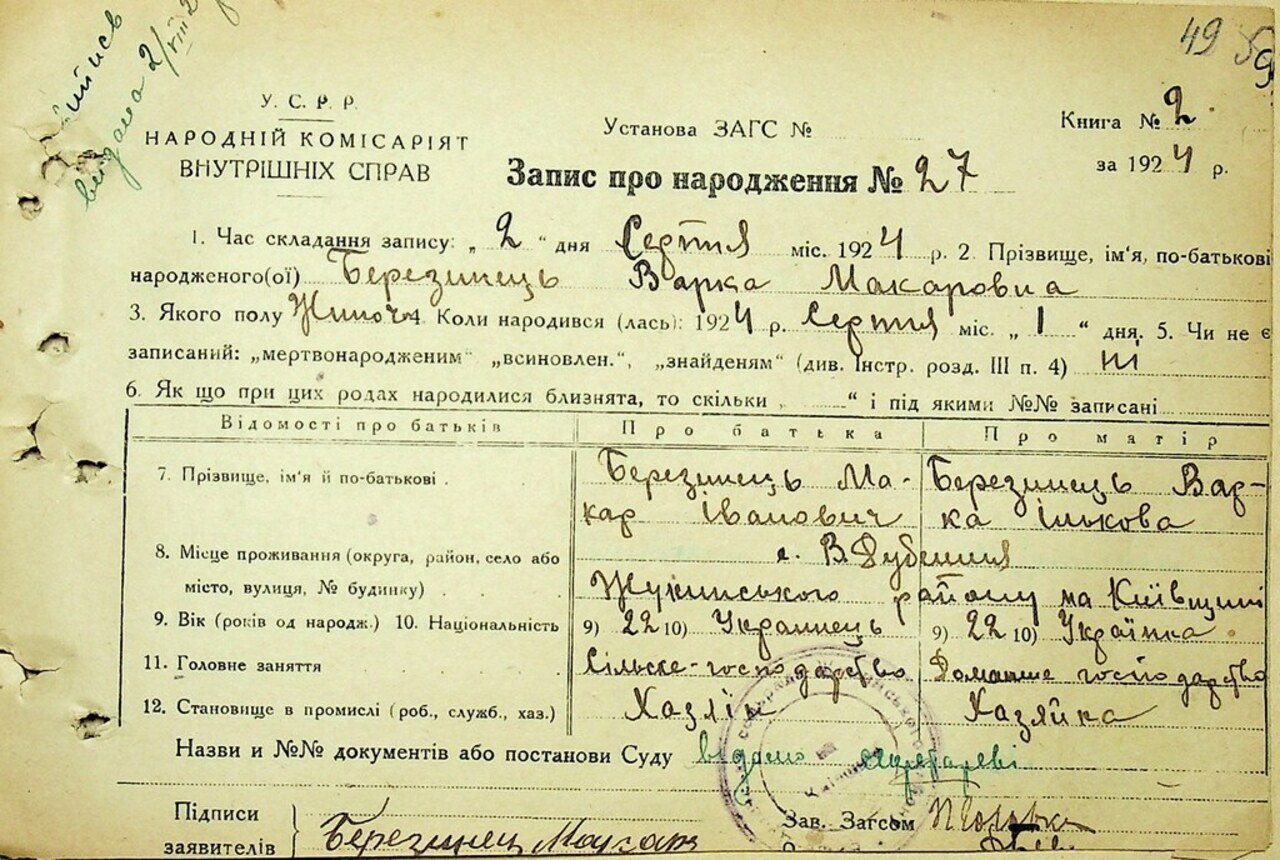 49 59
випись
видана 2/VIII 2
У. С. Р. Р.
НАРОДНІЙ КОМІСАРІЯТ
ВНУТРІШНІХ СПРАВ
Установа ЗАГС №
Книга № 2
за 1924 р.
Запис про народження № 27
1. Час складання запису: „ 2 “ дня Серпня міс. 1924 р. 2. Прізвище, ім'я, по-батькові
народженого(ої) Березинець Варка Макаровна
3. Якого полу Жиноч 4. Коли народився (лась): 1924 р. Серпня міс. „ 1 “ дня. 5. Чи не є
записаний: „мертвонародженим“ „всиновлен.“, „знайденям“ (див. Інстр. розд. III п. 4) ні
6. Як що при цих родах народилися близнята, то скільки „ “ і під якими №№ записані
Відомості про батьків Про батька Про матір
7. Прізвище, ім'я й по-батькові . Березинець Ма- Березинець Вар-
кар Іванович ка Ількова
8. Місце проживання (округа, район, село або с. В. Дубечня
місто, вулиця, № будинку) . . Жукинського району на Київщині
9. Вік (років од народж.) 10. Національність 9) 22 10) Украинець 9) 22 10) Українка
11. Головне заняття Сільске-господарство Домашне господарство
12. Становище в промислі (роб., служб., хаз.) Хазяїн Хазяйка
Назви и №№ документів або постанови Суду видано
Підписи Зав. Загсом
заявителів Березинец Макар